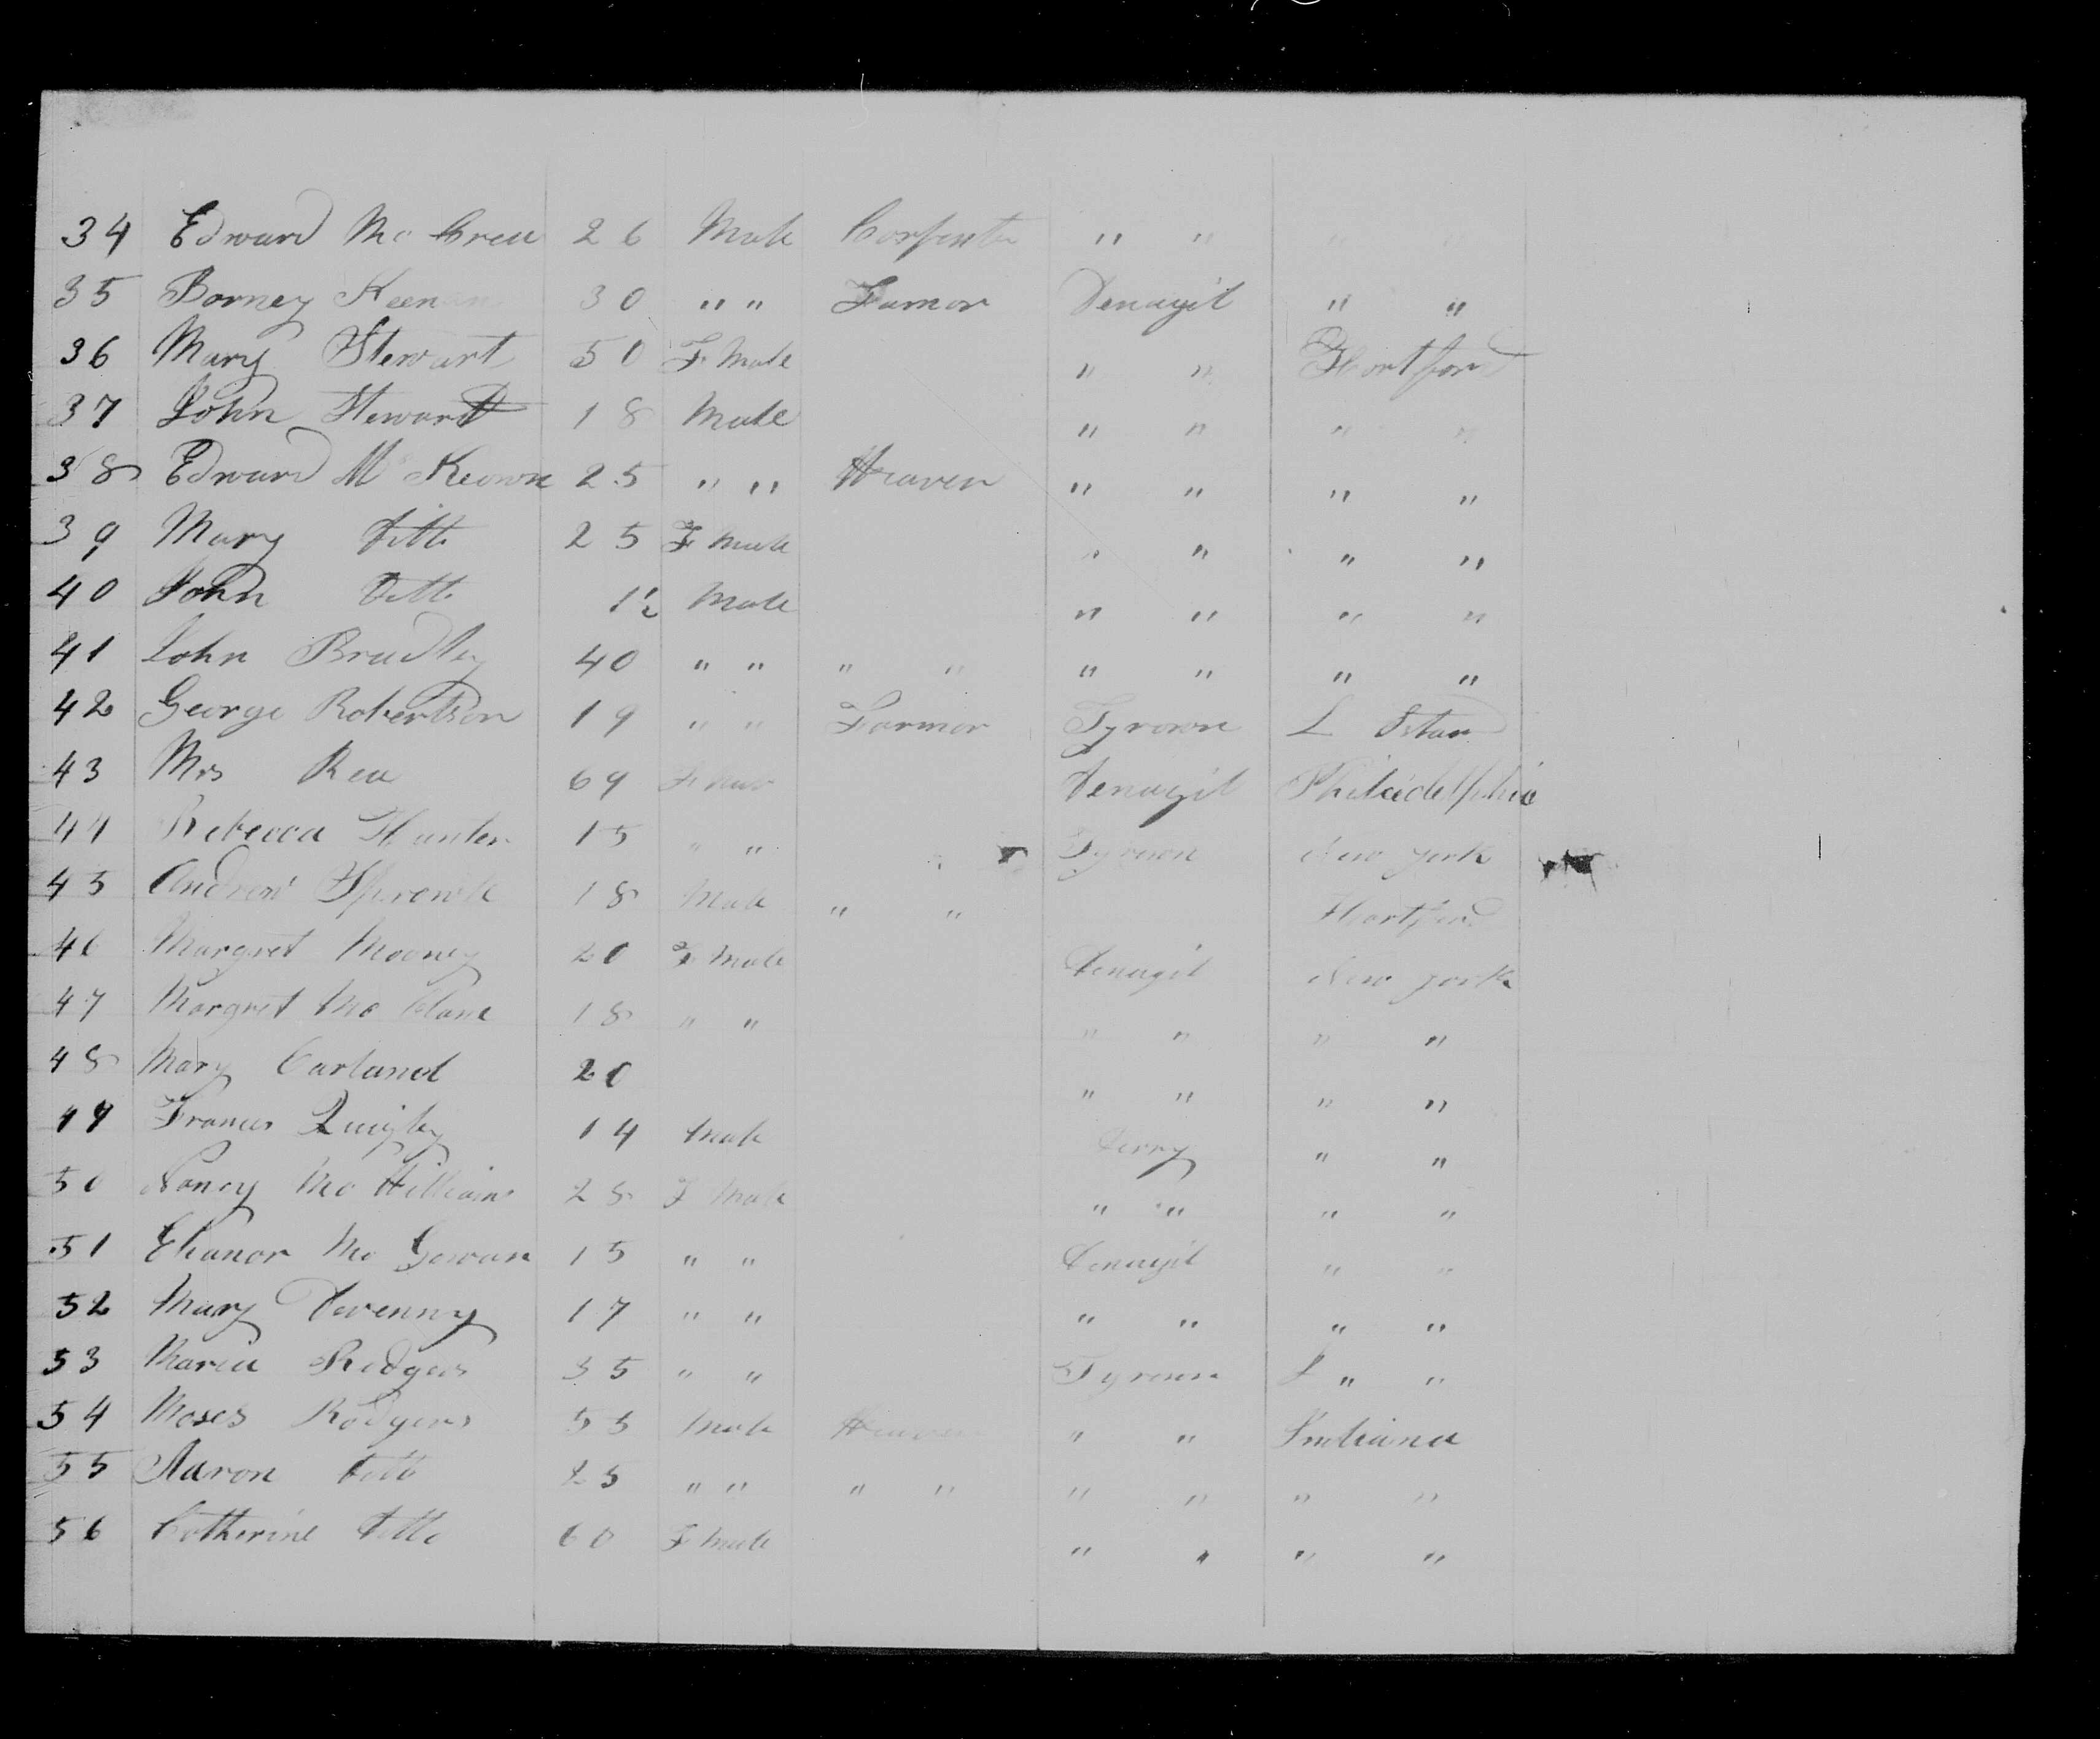 34 Edward Mc Crea 26 Male Carpenter " " " "
35 Barney Keenan 30 " " Farmor Denagil " "
36 Mary Stewart 50 F Male " " Hartford
37 John Stewart 18 Male " " " "
38 Edward Mc Keown 25 " " Weaver " " " "
39 Mary Ditto 25 F Male " " " "
40 John Ditto 1½ Male " " " "
41 John Bradley 40 " " " " " " " "
42 George Robertson 19 " " Farmor Tyrown
43 Mrs Rea 69 F Male Denagil Philidelphia
44 Rebecca Hunter 15 " " Tyrown New york
45 Andrew Sproule 18 Male " " Hartford
46 Margret Mooney 20 F Male Denagil New york
47 Margret Mc Clane 18 " " " " " "
48 Mary Carland 20 " " " "
49 Francis Quigley 14 Male Derry " "
50 Nancy Mc Williams 28 F Male " " " "
51 Elianor Mc Gowan 15 " " Denagil " "
52 Mary Devenny 17 " " " " " "
53 Maria Rodgers 35 " " Tyrown " "
54 Moses Rodgers 55 Male Weaver " " Indiana
55 Aaron Ditto 25 " " " " " " " "
56 Catherine Ditto 60 F Male " " " "